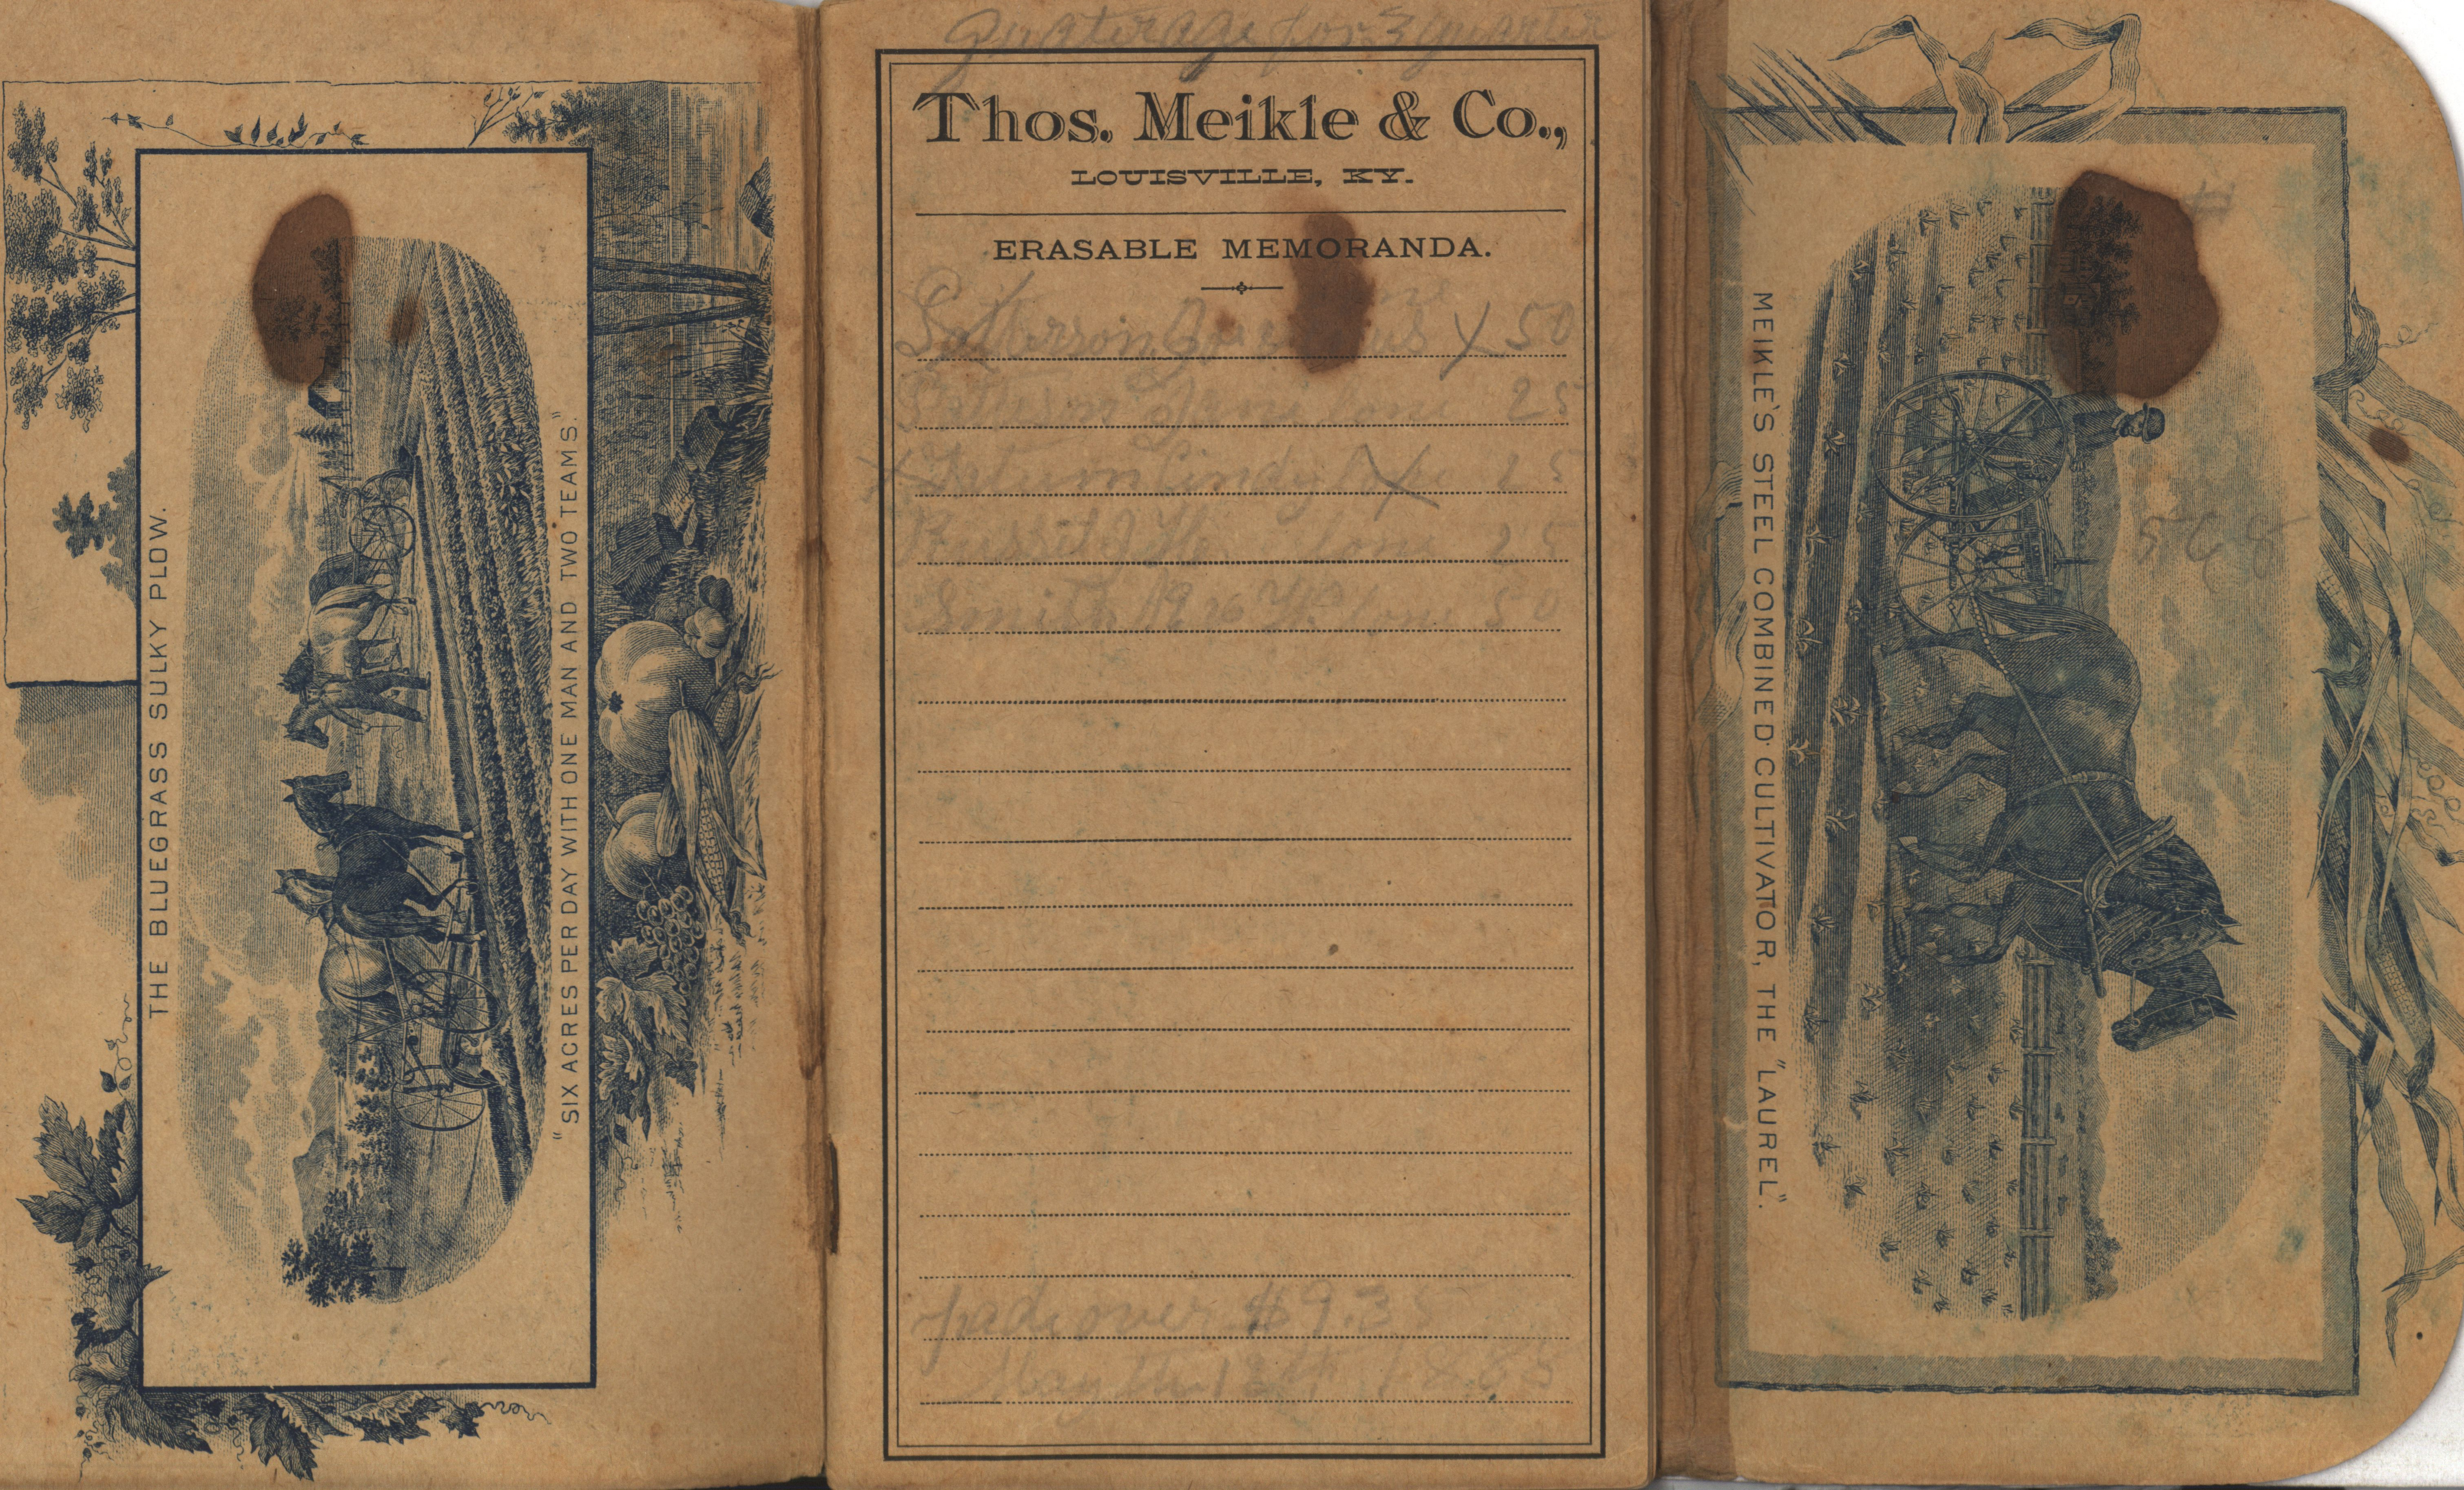 THE BLUEGRASS SULKY PLOW.
"SIX ACRES PER DAY WITH ONE MAN AND TWO TEAMS."
quaterage for 3 quarter
Thos. Meikle & Co.,
LOUISVILLE, KY.
ERASABLE MEMORANDA.
X 50
25
X Cindy 25
25
Smith 50
paid over $9.35
May the 18th 1885
MEIKLE'S STEEL COMBINED CULTIVATOR, THE "LAUREL".
568